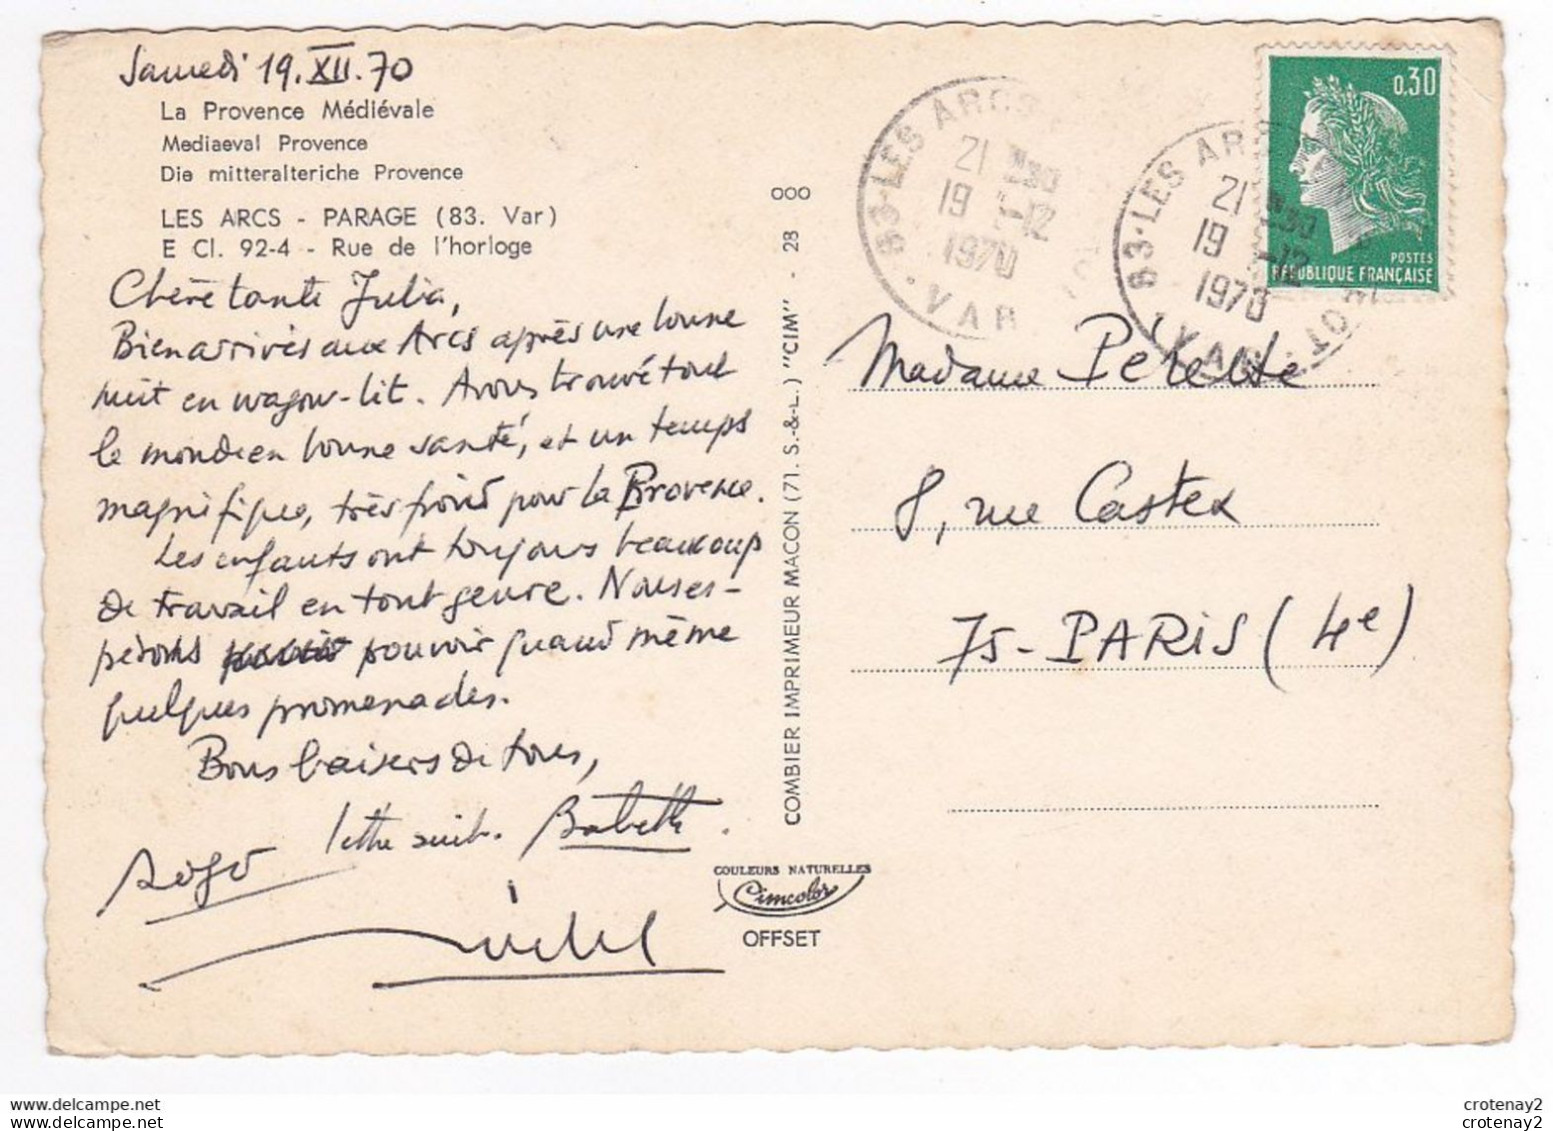 Samedi 19.XII.70
La Provence Médiévale
Mediaeval Provence
Die mitteralteriche Provence
LES ARCS - PARAGE (83. Var)
E Cl. 92-4 - Rue de l'horloge
Chère tante Julia,
Bien arrivés aux Arcs après une bonne
nuit en wagon-lit. Avons trouvé tout
le monde en bonne santé, et un temps
magnifique, très froid pour la Provence.
Les enfants ont toujours beaucoup
de travail en tout genre. Nous es-
pérons pouvoir quand même
quelques promenades.
Bons baisers de tous,
lettre suit. Babette
COULEURS NATURELLES
Cimcolor
OFFSET
COMBIER IMPRIMEUR MACON (71. S.-&-L.) "CIM" - 28 000
83-LES ARCS
21 30
19 -12
1970
VAR
83-LES ARCS
21 30
19 -12
1970
VAR
0,30
POSTES
REPUBLIQUE FRANÇAISE
Madame
8, rue Castex
75-PARIS (4e)
crotenay2
crotenay2